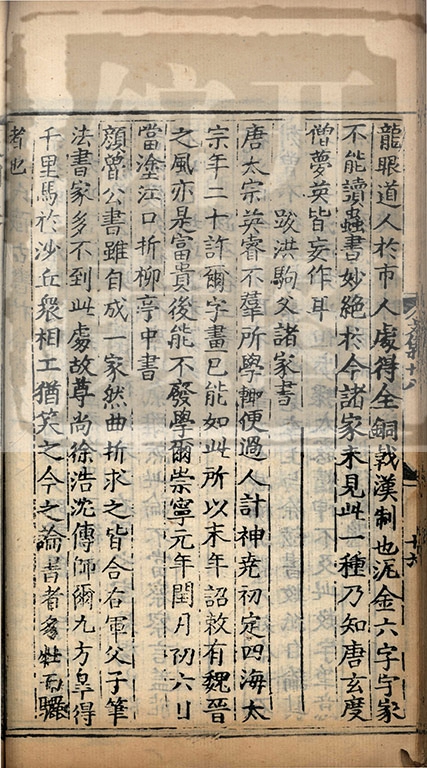 龍眼道人於市人處得全銅戟漢制也泥金六字字家
不能讀蟲書妙絕於今諸家未見此一種乃知唐玄度
僧夢英皆妄作耳
跋洪駒父諸家書
唐太宗英睿不羣所學輒便過人計神堯初定四海太
宗年二十許爾字畫已能如此所以末年詔敕有魏晉
之風亦是富貴後能不廢學爾崇寧元年閏月初六日
當塗江口折柳亭中書
顏魯公書雖自成一家然曲折求之皆合右軍父子筆
法書家多不到此處故尊尚徐浩沈傳師爾九方皐得
千里馬於沙丘衆相工猶笑之今之論書者多牡而驪
者也